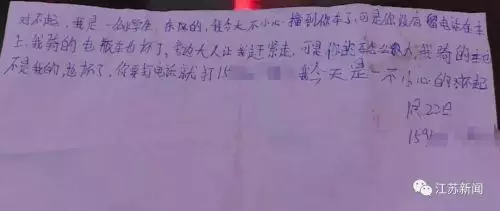 对不起，我是一个学生，我今天不小心撞到你车了，可是你没有留电话在车
上，我骑的也散车也坏了，旁边大人让我赶紧走，可是你的我骑的车也
不是我的，也坏了，你要打电话就打15 我今天是一不小心的对不起
月22日
159
江苏新闻